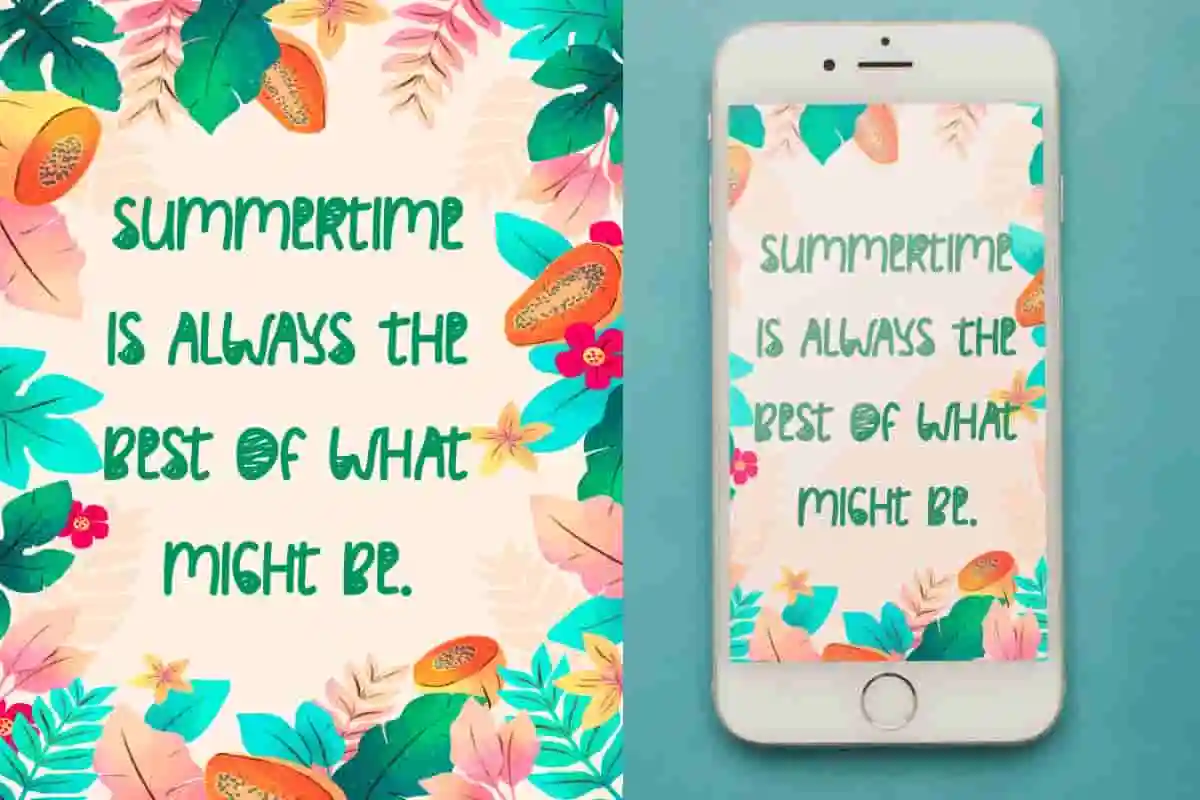 SUMMERTIME
IS ALWAYS THE
BEST OF WHAT
MIGHT BE.
SUMMERTIME
IS ALWAYS THE
BEST OF WHAT
MIGHT BE.